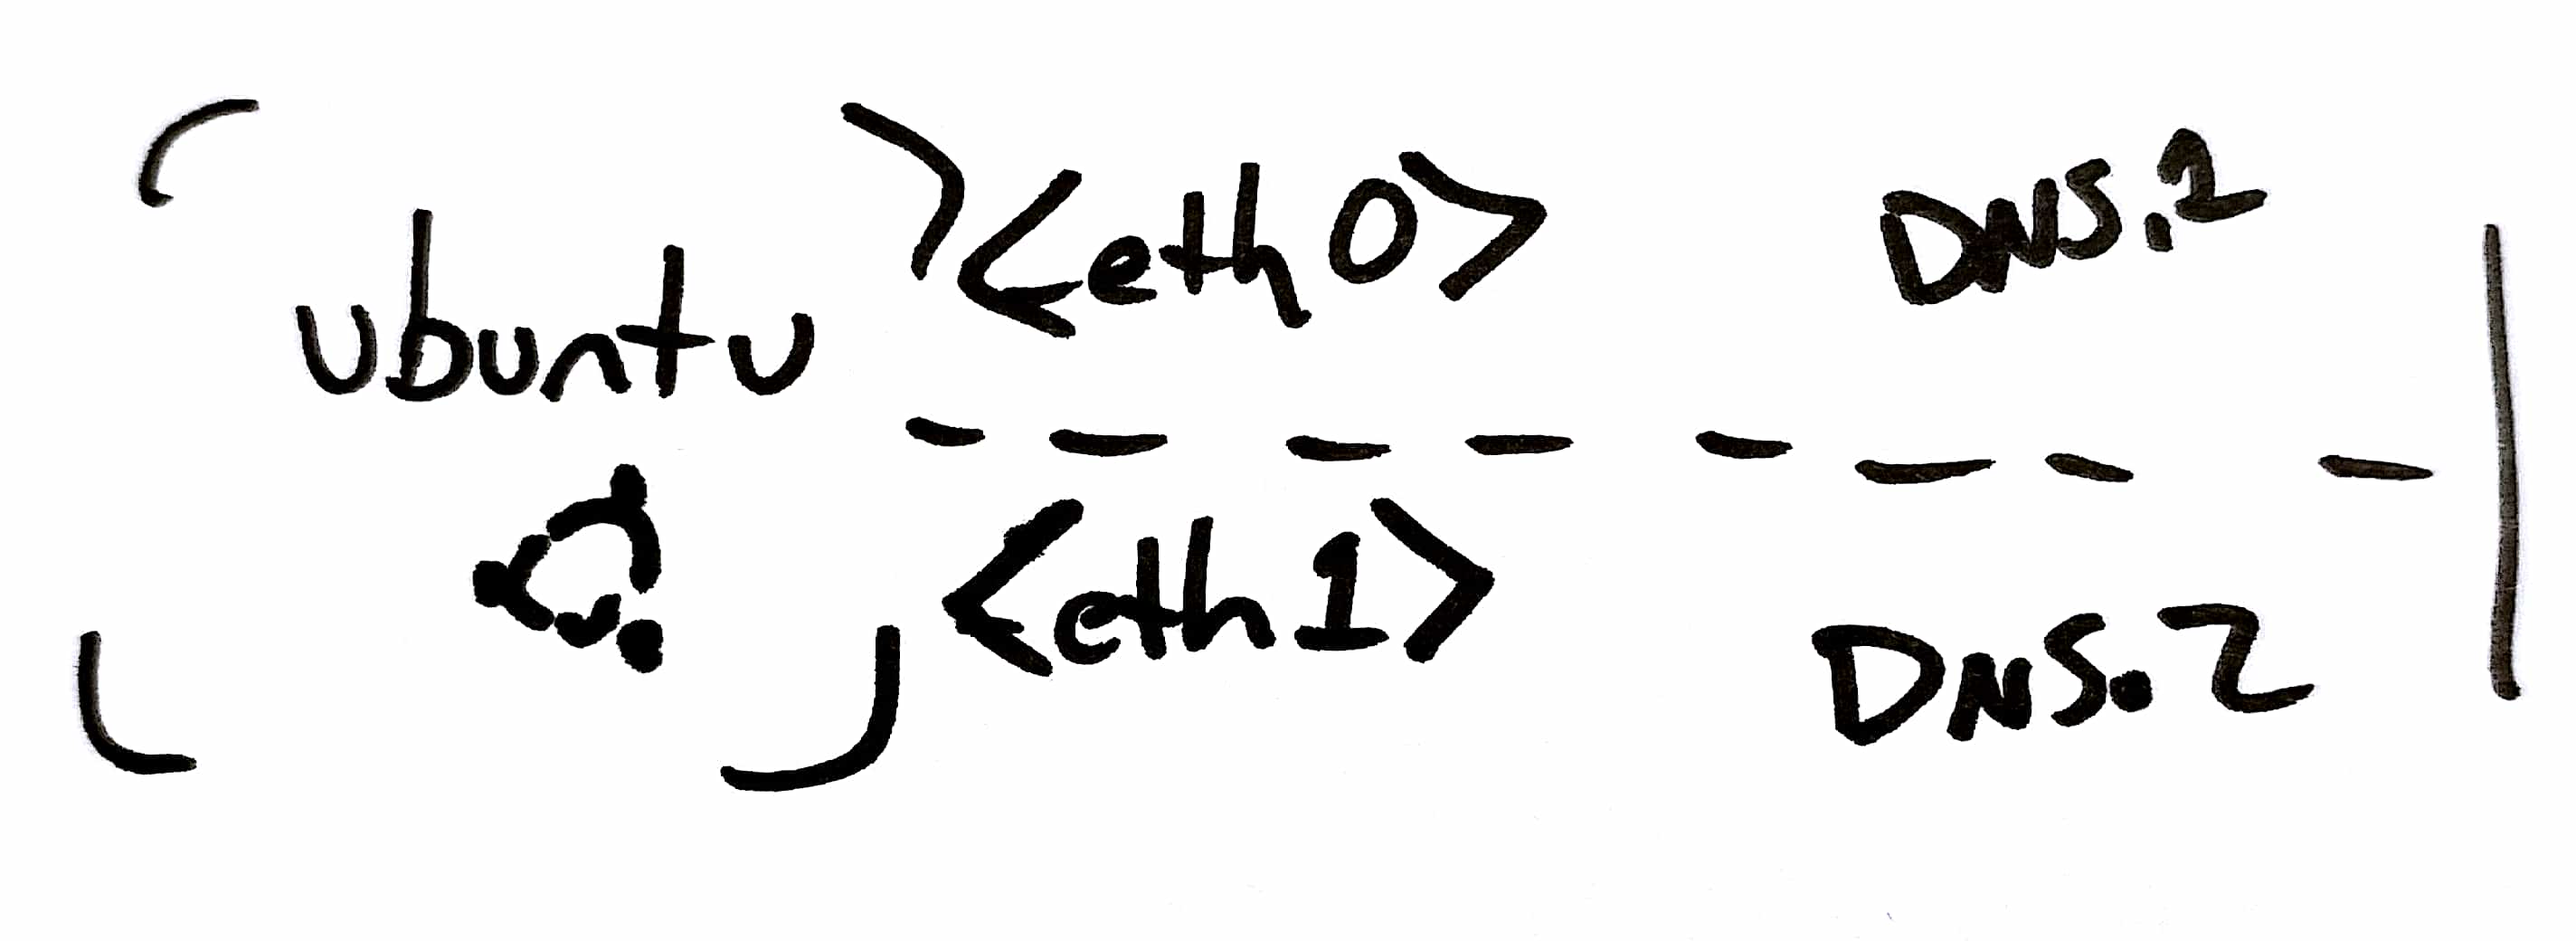 ubuntu
<eth0>
DNS.2
<eth1>
DNS.2